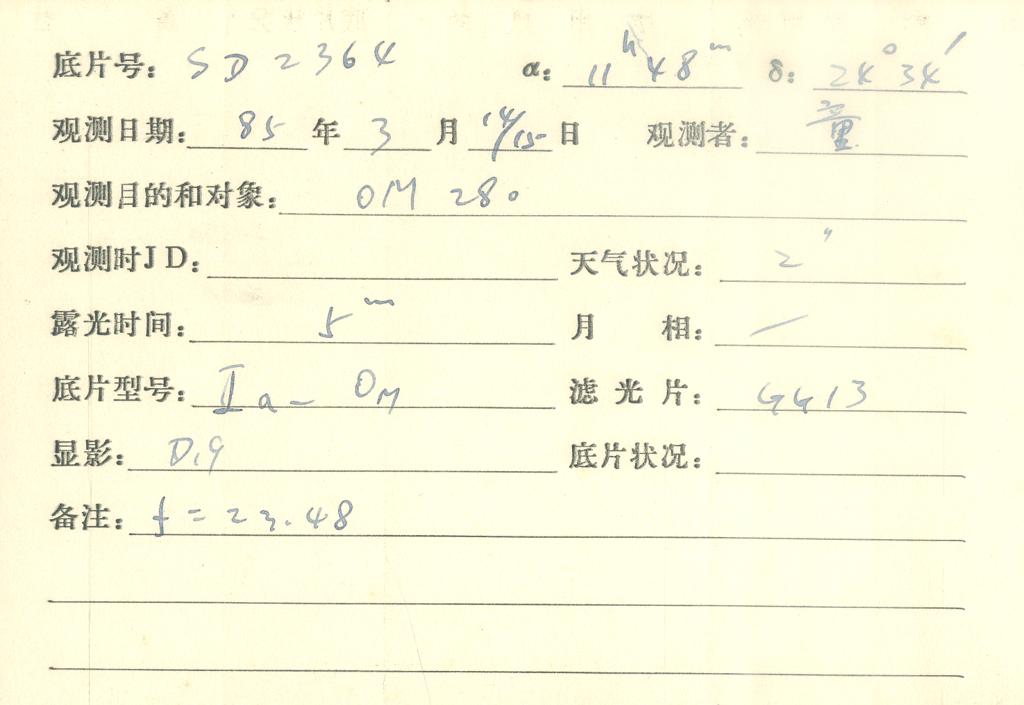 底片号: SD2364 α: 11h 48m δ: 24° 34′
观测日期: 85 年 3 月 14/15 日 观测者: 童
观测目的和对象: OM 280
观测时JD: 天气状况: 2″
露光时间: 5m 月 相: —
底片型号: IIa-OM 滤光片: GG13
显影: D.19 底片状况:
备注: f = 23.48